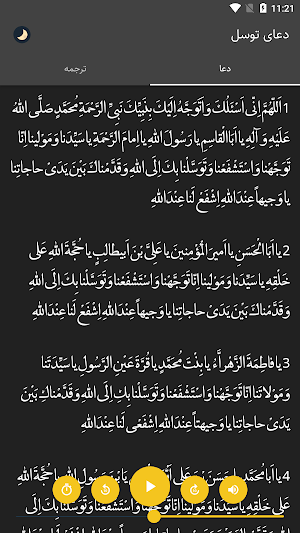 11:21
دعای توسل
دعا
ترجمه
1 اَللّهُمَّ اِنّى اَسْئَلُكَ وَ اَتَوَجَّهُ اِلَيْكَ بِنَبِيِّكَ نَبِىِّ الرَّحْمَةِ مُحَمَّدٍ صَلَّى اللهُ
عَلَيْهِ وَ آلِهِ يا اَبَا الْقاسِمِ يا رَسُولَ اللهِ يا اِمامَ الرَّحْمَةِ يا سَيِّدَنا وَ مَوْلينا اِنّا
تَوَجَّهْنا وَ اسْتَشْفَعْنا وَ تَوَسَّلْنا بِكَ اِلَى اللهِ وَ قَدَّمْناكَ بَيْنَ يَدَىْ حاجاتِنا
يا وَجيهاً عِنْدَ اللهِ اِشْفَعْ لَنا عِنْدَ اللهِ
2 يا اَبَا الْحَسَنِ يا اَميرَ الْمُؤْمِنينَ يا عَلِىَّ بْنَ اَبيطالِبٍ يا حُجَّةَ اللهِ عَلى
خَلْقِهِ يا سَيِّدَنا وَ مَوْلينا اِنّا تَوَجَّهْنا وَ اسْتَشْفَعْنا وَ تَوَسَّلْنا بِكَ اِلَى اللهِ
وَ قَدَّمْناكَ بَيْنَ يَدَىْ حاجاتِنا يا وَجيهاً عِنْدَ اللهِ اِشْفَعْ لَنا عِنْدَ اللهِ
3 يا فاطِمَةَ الزَّهْراَّءُ يا بِنْتَ مُحَمَّدٍ يا قُرَّةَ عَيْنِ الرَّسُولِ يا سَيِّدَتَنا
وَ مَوْلاتَنا اِنّا تَوَجَّهْنا وَ اسْتَشْفَعْنا وَ تَوَسَّلْنا بِكِ اِلَى اللهِ وَ قَدَّمْناكِ بَيْنَ
يَدَىْ حاجاتِنا يا وَجيهَةً عِنْدَ اللهِ اِشْفَعى لَنا عِنْدَ اللهِ
4 يا اَبا مُحَمَّدٍ يا حَسَنَ بْنَ عَلِىٍّ يَا بْنَ رَسُولِ اللهِ يا حُجَّةَ اللهِ
عَلى خَلْقِهِ يا سَيِّدَنا وَ مَوْلينا اِنّا تَوَجَّهْنا وَ اسْتَشْفَعْنا وَ تَوَسَّلْنا